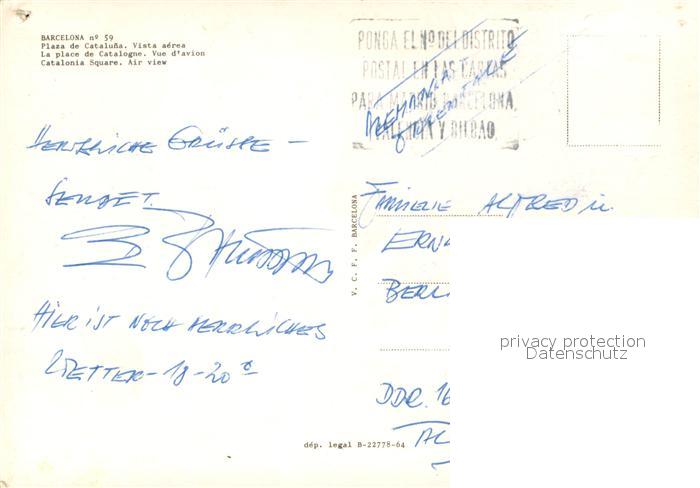 BARCELONA nº 59
Plaza de Cataluña. Vista aérea
La place de Catalogne. Vue d'avion
Catalonia Square. Air view
PONGA EL Nº DEL DISTRITO
POSTAL EN LAS CARTAS
PARA MADRID BARCELONA,
VALENCIA Y BILBAO
HERZLICHE GRÜSSE -
SENDET
HIER IST NOCH HERRLICHES
WETTER - 18-20°
V. C. F. F. BARCELONA
FAMILIE ALFRED U.
ERN
BERLI
DDR. 16
dép. legal B-22778-64
privacy protection
Datenschutz